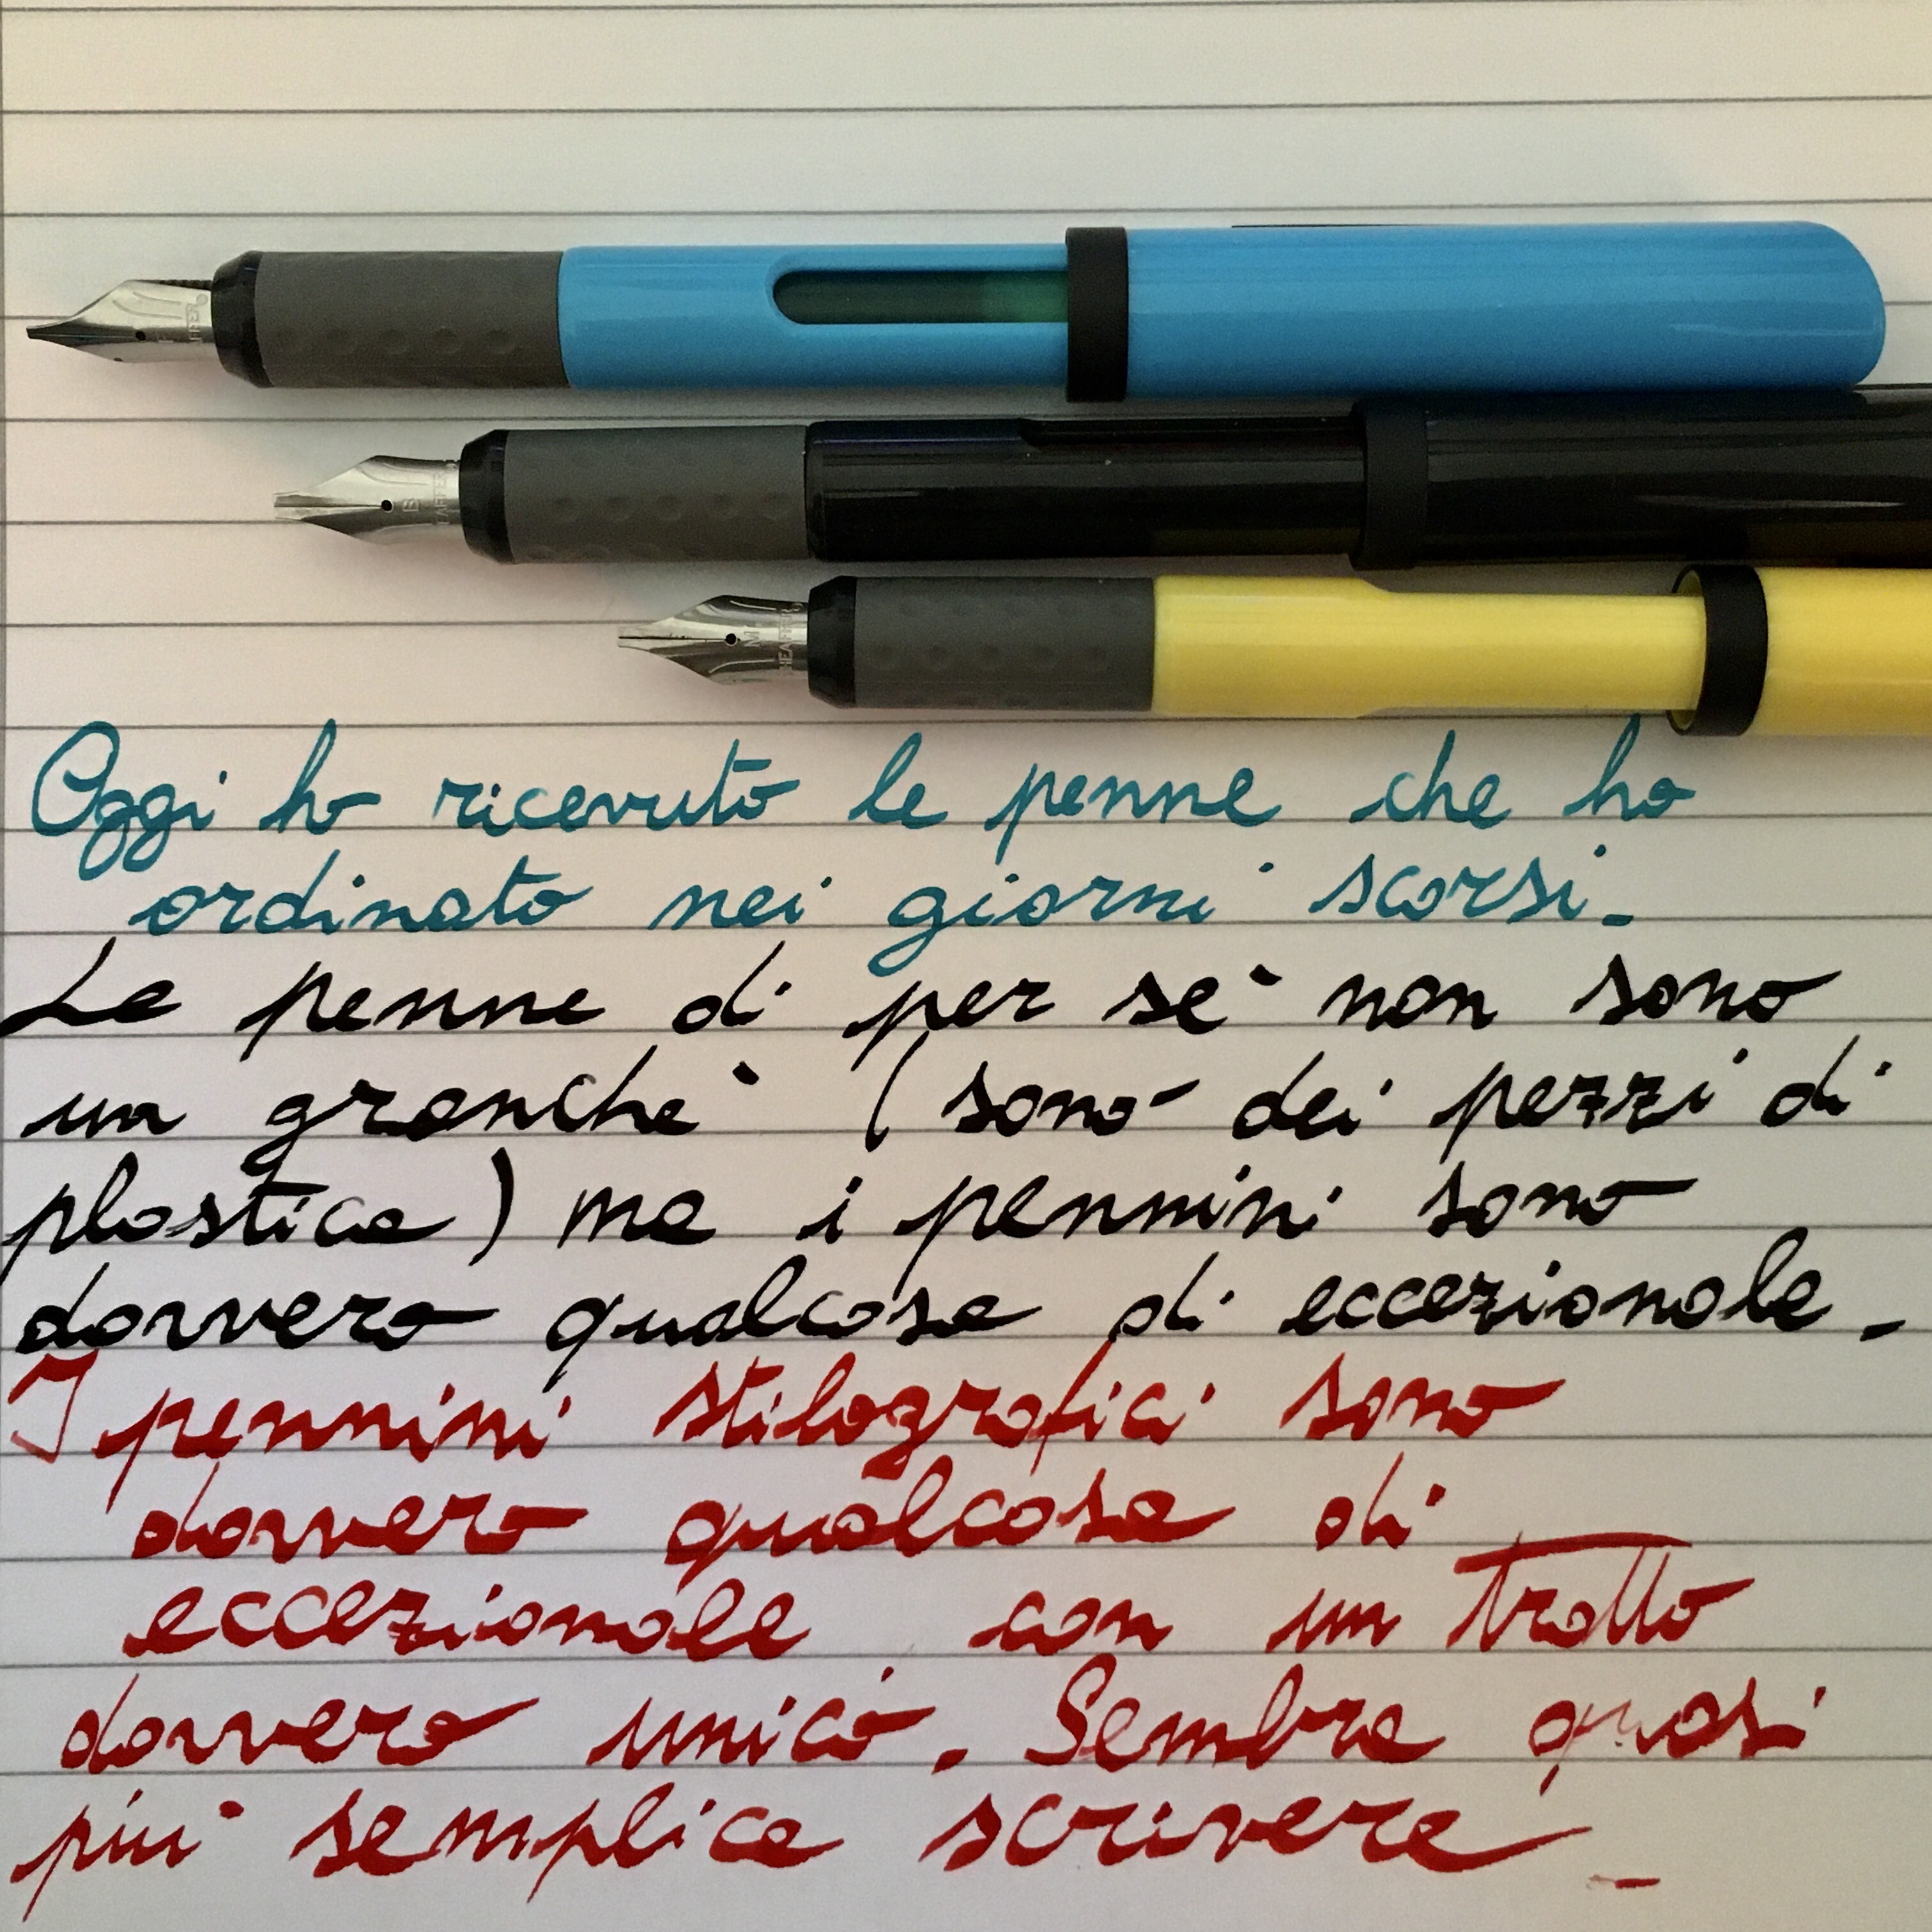 SHEAFFER
B SHEAFFER
M SHEAFFER
Oggi ho ricevuto le penne che ho
ordinato nei giorni scorsi.
Le penne di per sè non sono
un granchè (sono dei pezzi di
plastica) ma i pennini sono
davvero qualcosa di eccezionale.
I pennini stilografici sono
davvero qualcosa di
eccezionale con un tratto
davvero unico. Sembra quasi
più semplice scrivere